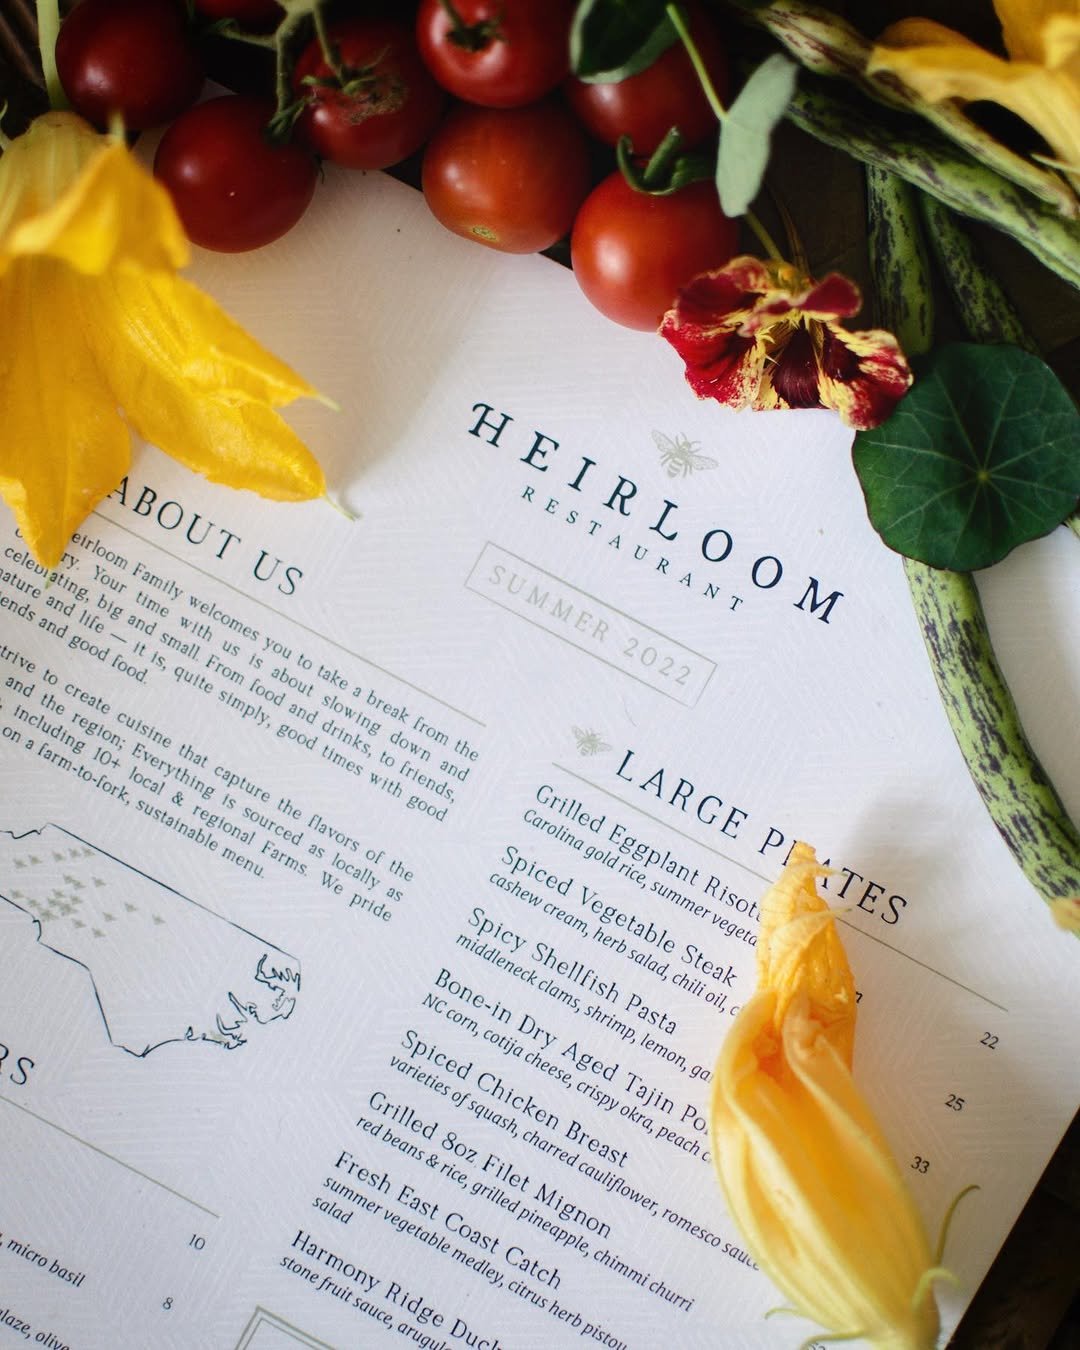 HEIRLOOM
RESTAURANT
SUMMER 2022
ABOUT US
Family welcomes you to take a break from the
Your time with us is about slowing down and
celebrating, big and small. From food and drinks, to friends,
nature and life — it is, quite simply, good times with good
friends and good food.
strive to create cuisine that capture the flavors of the
and the region; Everything is sourced as locally as
including 10+ local & regional Farms. We pride
on a farm-to-fork, sustainable menu.
RS
10
micro basil
8
olive
LARGE PLATES
Grilled Eggplant
Carolina gold rice, summer
22
Spiced Vegetable Steak
cashew cream, herb salad, chili oil,
25
Spicy Shellfish Pasta
middleneck clams, shrimp, lemon,
33
Bone-in Dry Aged Tajin
NC corn, cotija cheese, crispy okra, peach
Spiced Chicken Breast
varieties of squash, charred cauliflower, romesco sauce
Grilled 8oz Filet Mignon
red beans & rice, grilled pineapple, chimmi churri
Fresh East Coast Catch
summer vegetable medley, citrus herb pistou
salad
Harmony Ridge Duck
stone fruit sauce,